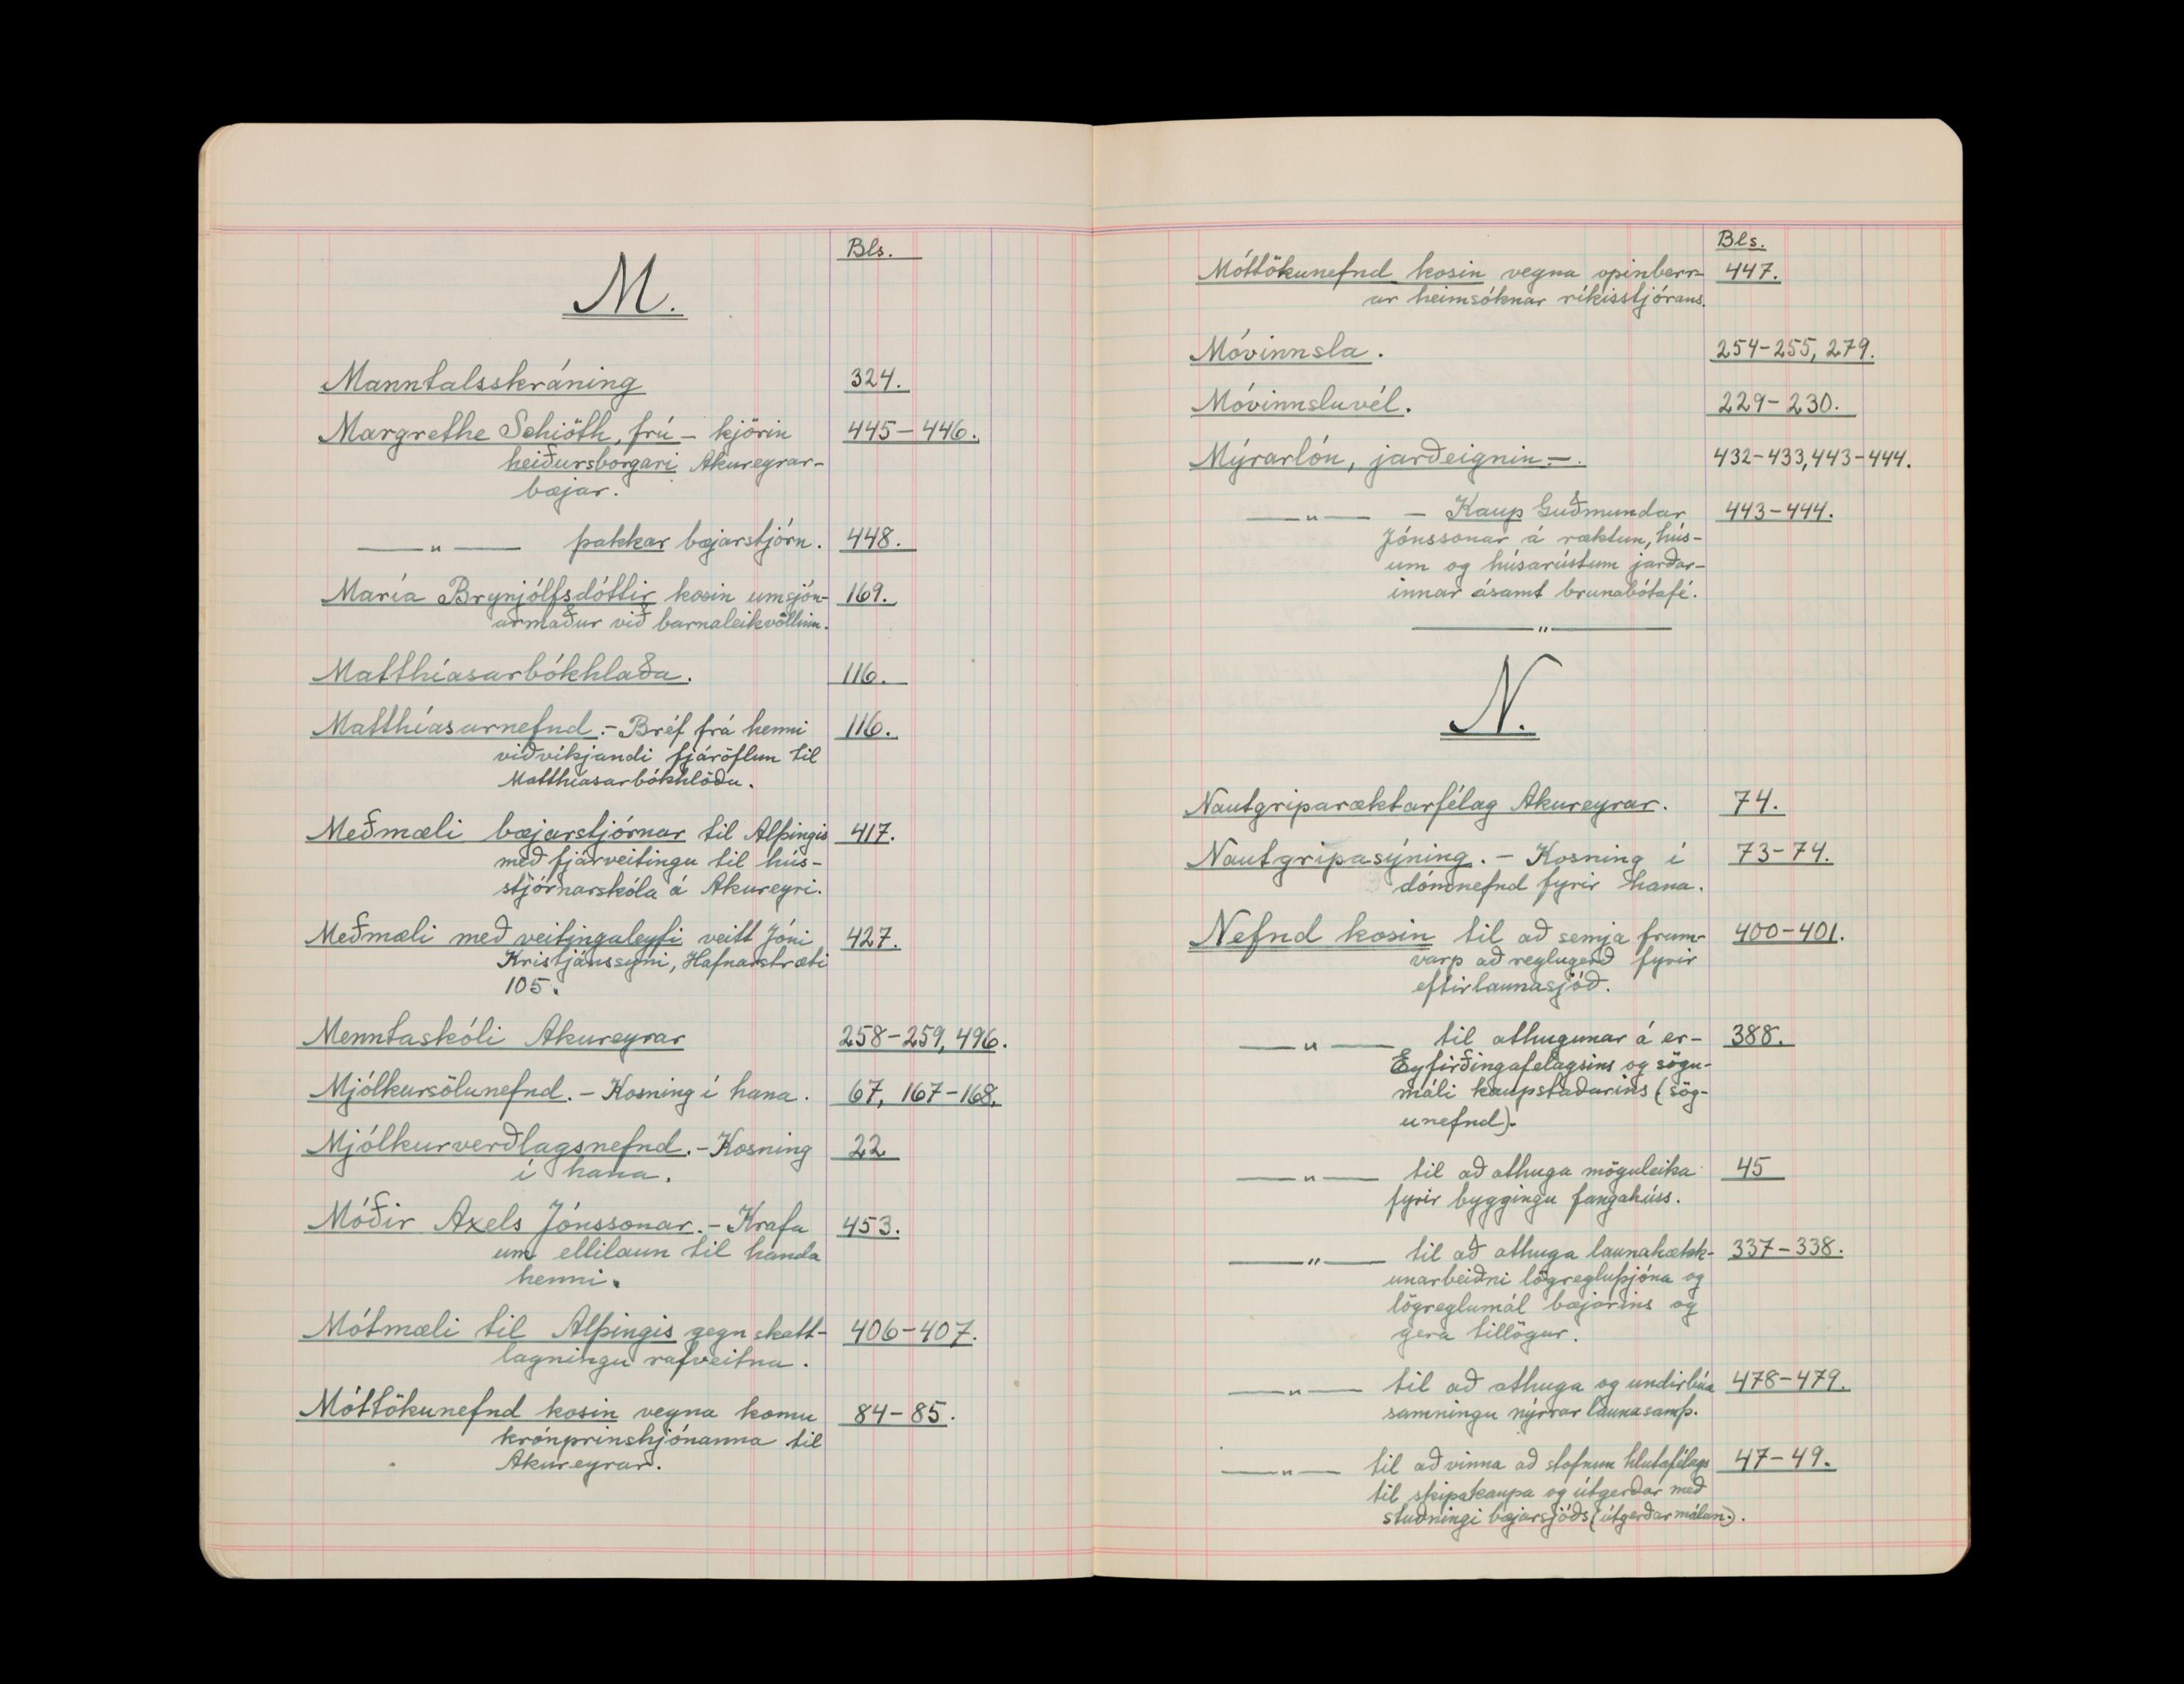 Bls.
M.
Manntalsskráning 324.
Margrethe Schiöth, frú - kjörin 445-446.
heiðursborgari Akureyrar-
bæjar.
—„— þakkar bæjarstjórn. 448.
María Brynjólfsdóttir kosin umsjón- 169.
armaður við barnaleikvöllinn.
Matthíasarbókhlaða. 116.
Matthíasarnefnd.- Bréf frá henni 116.
viðvíkjandi fjáröflun til
Matthíasarbókhlöðu.
Meðmæli bæjarstjórnar til Alþingis 417.
með fjárveitingu til hús-
stjórnarskóla á Akureyri.
Meðmæli með veitingaleyfi veitt Jóni 427.
Kristjánssyni, Hafnarstræti
105.
Menntaskóli Akureyrar 258-259, 496.
Mjólkursölunefnd. - Kosning í hana. 67, 167-168.
Mjólkurverðlagsnefnd. - Kosning 22
í hana.
Móðir Axels Jónssonar. - Krafa 453.
um ellilaun til handa
henni.
Mótmæli til Alþingis gegn skatt- 406-407.
lagningu rafveitna.
Móttökunefnd kosin vegna komu 84-85.
krónprinshjónanna til
Akureyrar.
Bls.
Móttökunefnd kosin vegna opinberr- 447.
ar heimsóknar ríkisstjórans.
Móvinnsla. 254-255, 279.
Móvinnsluvél. 229-230.
Mýrarlón, jarðeignin.-. 432-433, 443-444.
—„— - Kaup Guðmundar 443-444.
Jónssonar á ræktun, hús-
um og húsarústum jarðar-
innar ásamt brunabótafé.
—„—
N.
Nautgriparæktarfélag Akureyrar. 74.
Nautgripasýning. - Kosning í 73-74.
dómnefnd fyrir hana.
Nefnd kosin til að semja frum- 400-401.
varp að reglugerð fyrir
eftirlaunasjóð.
—„— til athugunar á er- 388.
Eyfirðingafelagsins og sögu-
máli kaupstaðarins (sög-
unefnd).
—„— til að athuga möguleika 45
fyrir byggingu fangahúss.
—„— til að athuga launahækk- 337-338.
unarbeiðni lögregluþjóna og
lögreglumál bæjarins og
gera tillögur.
—„— til að athuga og undirbúa 478-479.
samningu nýrrar launasamþ.
—„— til að vinna að stofnun hlutafélags 47-49.
til skipakaupa og útgerðar með
stuðningi bæjarsjóðs (útgerðarmálan.).